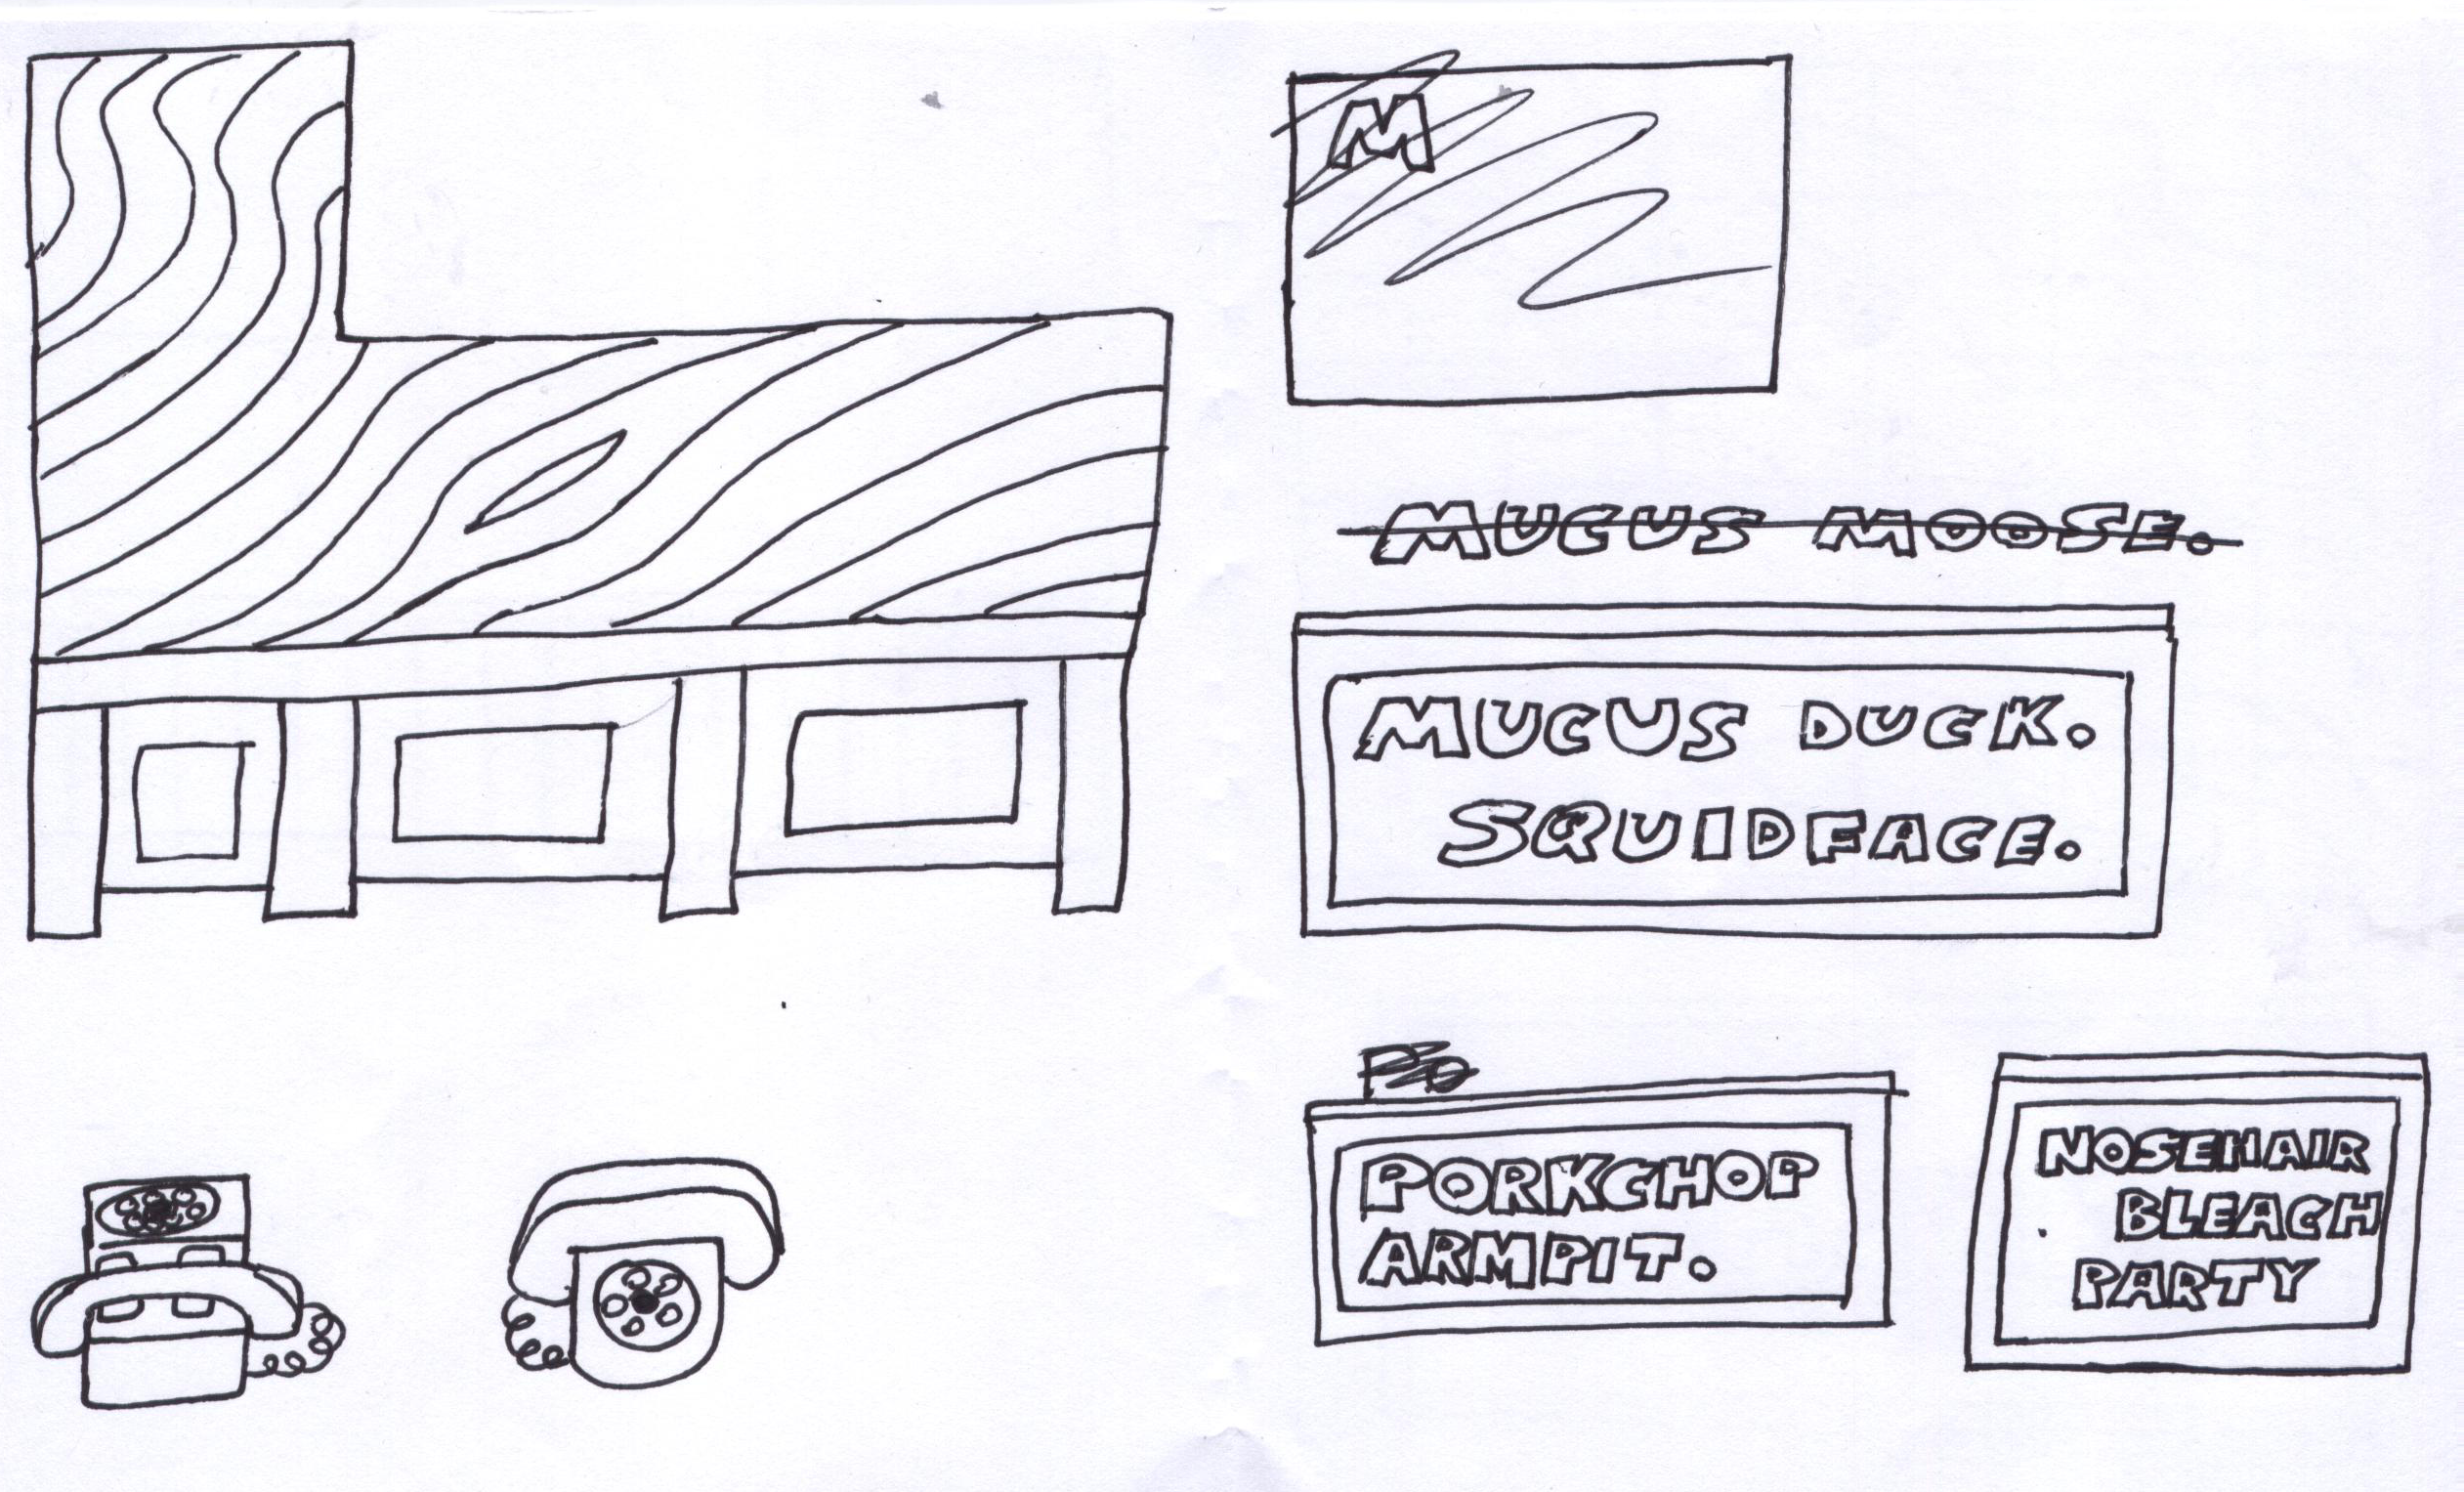 M
MUCUS MOOSE.
MUCUS DUCK.
SQUIDFACE.
PO
PORKCHOP
ARMPIT.
NOSEHAIR
BLEACH
PARTY